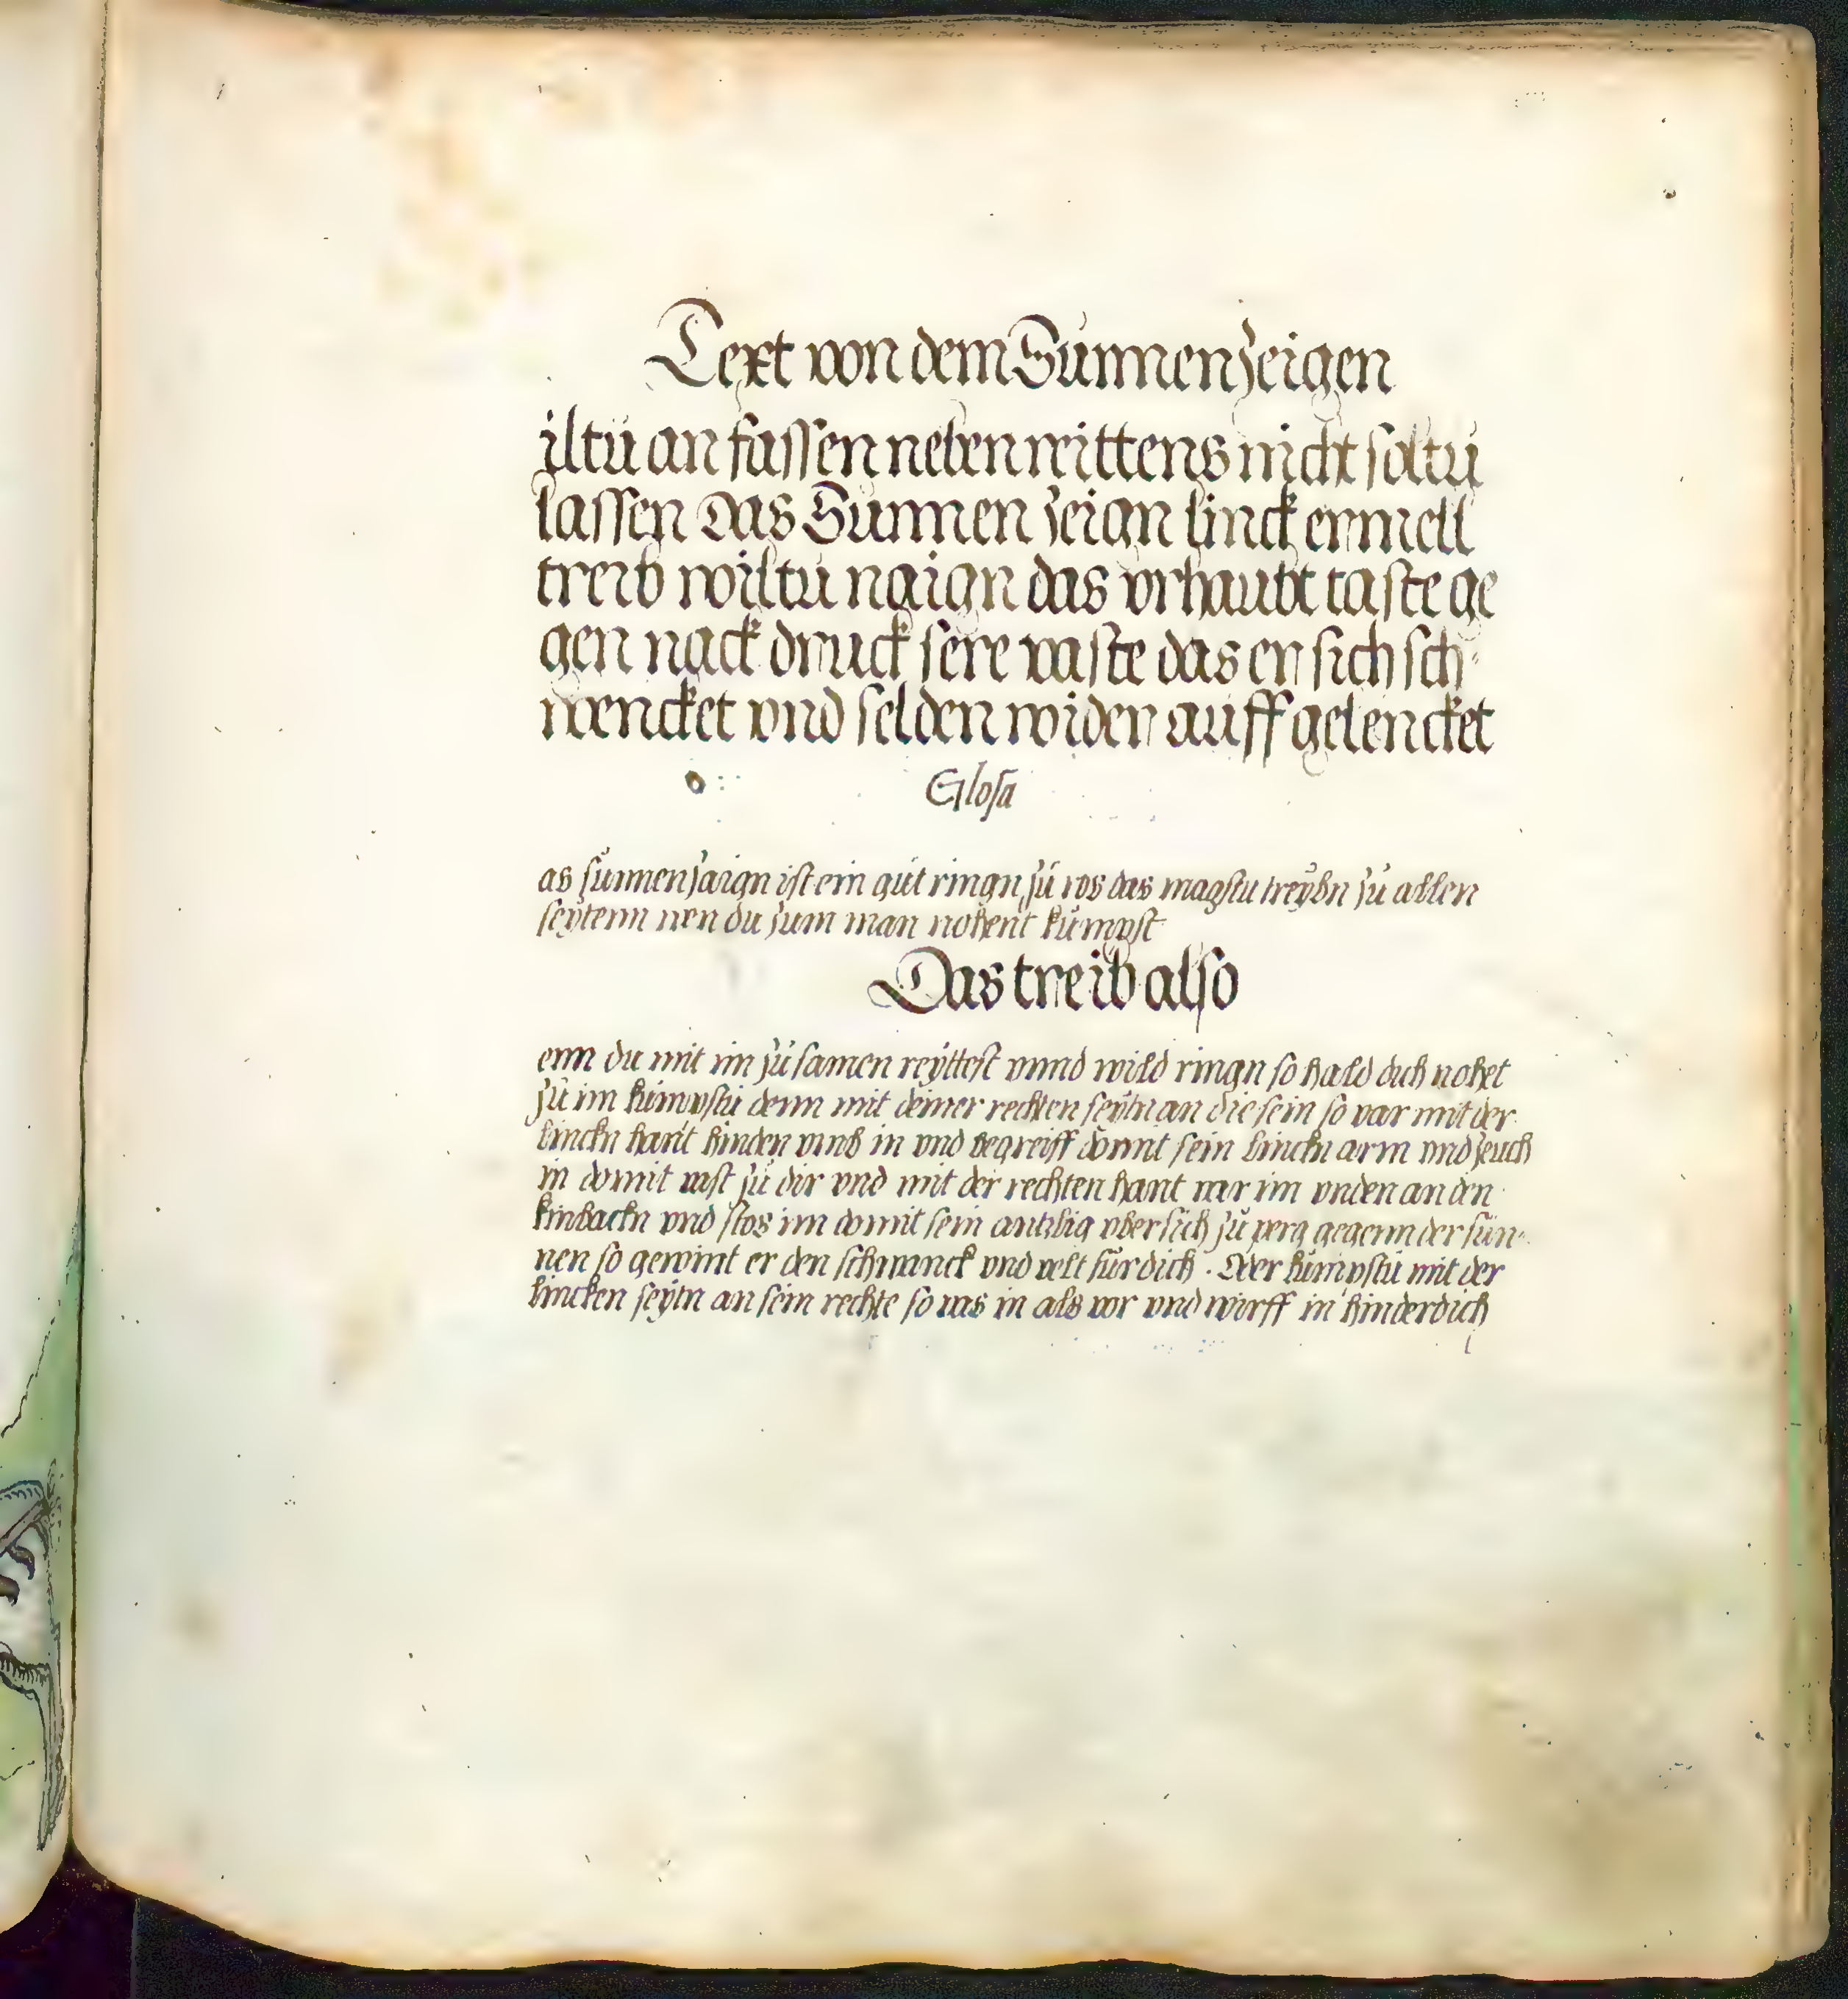 Text von dem Sunnenzeigen
iltu an fassen neben reittens nicht soltu
lassen Das Sunnen zeign linck ermell
treib wiltu naign das vrhaubt taste ge
gen nack druck sere vaste das er sich sch
wencket vnd selden wider auff gelencket
Glosa
as sunnenzaign ist ein gut ringn zu ros das magstu treybn zu abben
seytenn wen du zum man nohent kumpst
Das treib also
enn du mit im zu samen reyttest vnnd wild ringn so hald dich nohet
zu im kumpstu denn mit deiner rechten seytn an die sein so var mit der
linckn hant hinden vmb in vnd begreiff domit sein linckn arm vnd zeuch
in domit vast zu dir vnd mit der rechten hant var im vnden an den
kinbackn vnd stos im domit sein antzlig vbersich zu perg gegenn der sun
nen so gewint er den schwanck vnd velt für dich. Oder kumpstu mit der
lincken seytn an sein rechte so vas in als vor vnd wirff in hinder dich